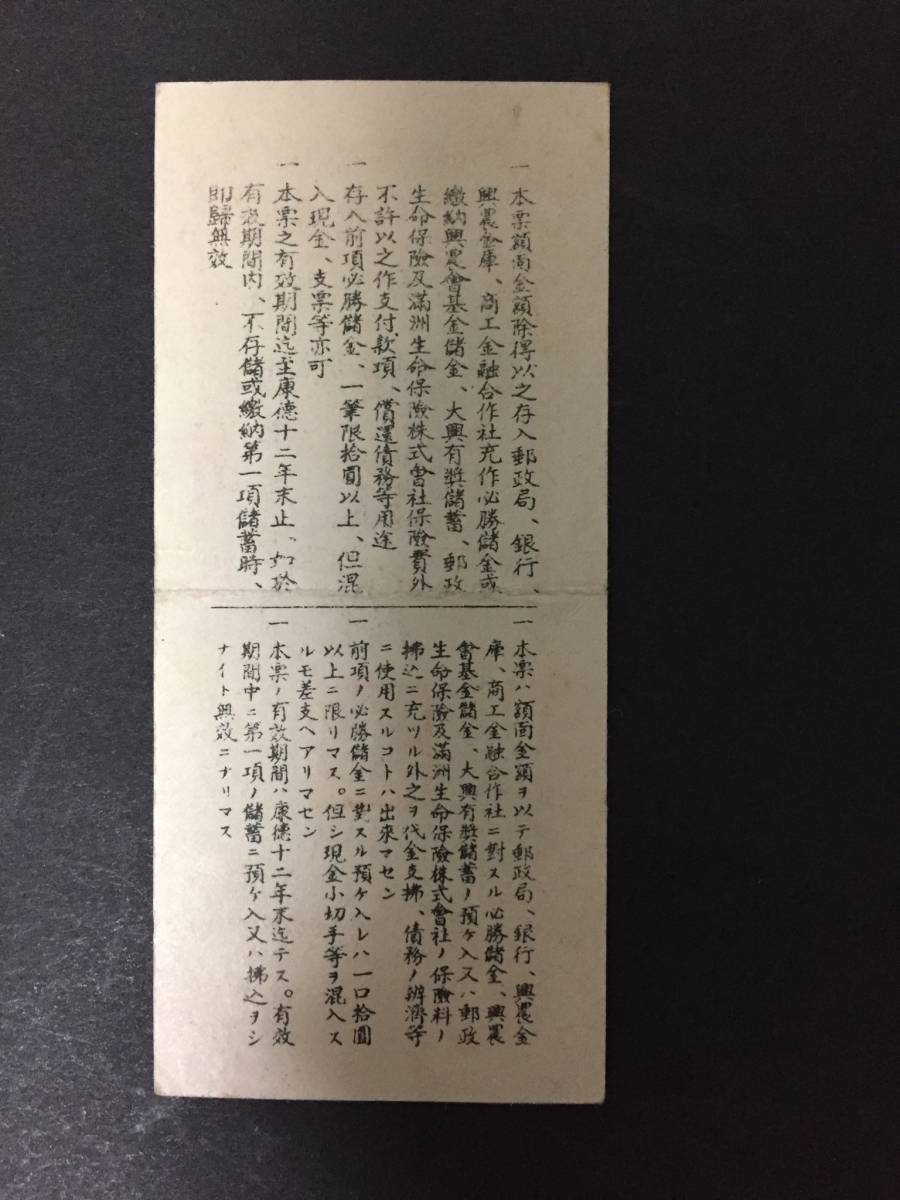 一 本票額面金額除得以之存入郵政局、銀行、
興農金庫、商工金融合作社充作必勝儲金或
繳納興農會基金儲金、大興有獎儲蓄、郵政
生命保險及滿洲生命保險株式會社保險費外
不許以之作支付款項、償還債務等用途
一 存入前項必勝儲金、一筆限拾圓以上、但混
入現金、支票等亦可
一 本票之有效期間迄至康德十二年末止、如於
有效期間内、不存儲或繳納第一項儲蓄時、
即歸無效
一 本票ハ額面金額ヲ以テ郵政局、銀行、興農金
庫、商工金融合作社ニ對スル必勝儲金、興農
會基金儲金、大興有獎儲蓄ノ預ケ入又ハ郵政
生命保險及滿洲生命保險株式會社ノ保險料ノ
拂込ニ充ツル外之ヲ代金支拂、債務ノ辨濟等
ニ使用スルコトハ出來マセン
一 前項ノ必勝儲金ニ對スル預ケ入レハ一口拾圓
以上ニ限リマス。但シ現金小切手等ヲ混入ス
ルモ差支ヘアリマセン
一 本票ノ有效期間ハ康德十二年末迄テス。有效
期間中ニ第一項ノ儲蓄ニ預ケ入又ハ拂込ヲシ
ナイト無效ニナリマス